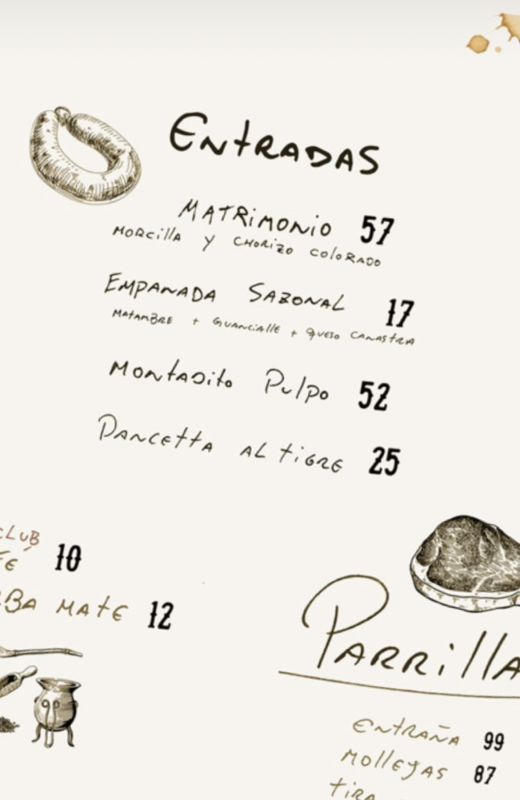 ENTRADAS
MATRIMONIO 57
MORCILLA Y CHORIZO COLORADO
EMPANADA SAZONAL 17
MATAMBRE + GUANCIALLE + QUESO CANASTRA
MONTADITO PULPO 52
PANCETTA AL TIGRE 25
CLUB
FE 10
BA MATE 12
PARRILLA
ENTRAÑA 99
MOLLEJAS 87
TIRA